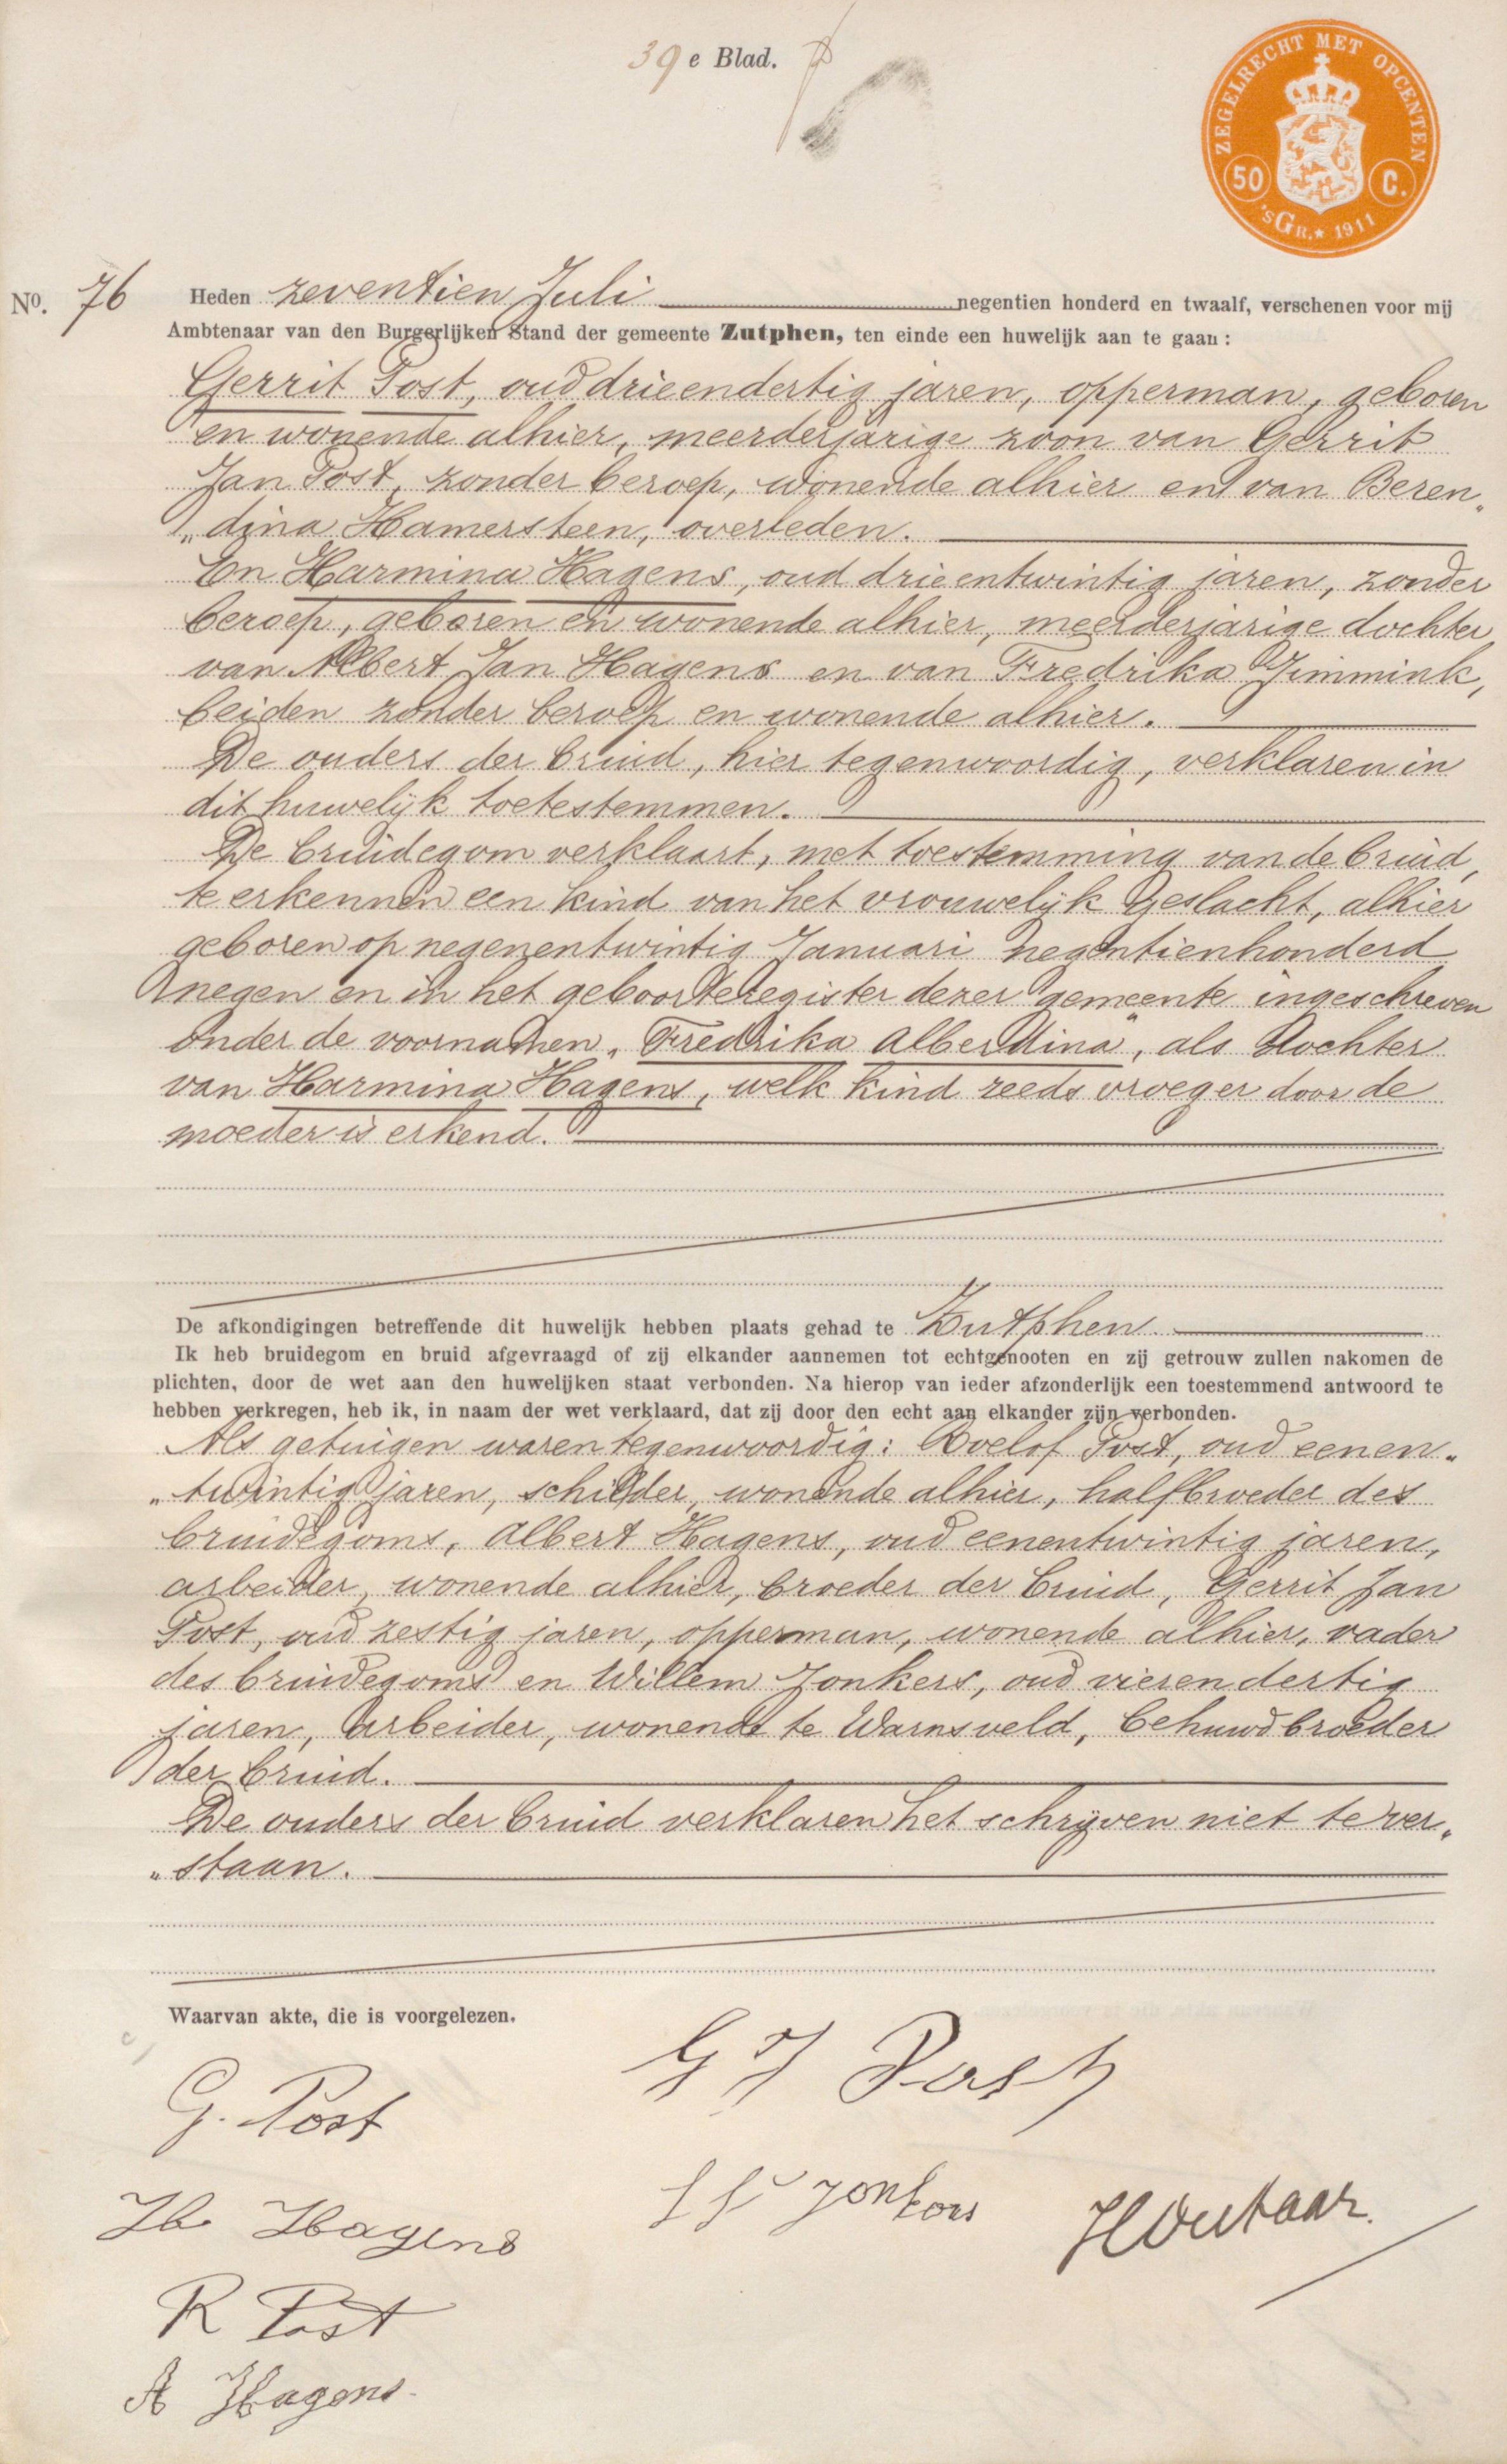 39e Blad.
ZEGELRECHT MET OPCENTEN
50 C.
'sGR.★ 1911
No. 76 Heden zeventien Juli negentien honderd en twaalf, verschenen voor mij
Ambtenaar van den Burgerlijken Stand der gemeente Zutphen, ten einde een huwelijk aan te gaan:
Gerrit Post, oud drieendertig jaren, opperman, geboren
en wonende alhier, meerderjarige zoon van Gerrit
Jan Post, zonder beroep, wonende alhier en van Beren„
„dina Hamersteen, overleden.
En Harmina Hagens, oud drieentwintig jaren, zonder
beroep, geboren en wonende alhier, meerderjarige dochter
van Albert Jan Hagens en van Fredrika Jimmink,
beiden zonder beroep en wonende alhier.
De ouders der bruid, hier tegenwoordig, verklaren in
dit huwelijk toetestemmen.
De bruidegom verklaart, met toestemming van de bruid,
te erkennen een kind van het vrouwelijk geslacht, alhier
geboren op negenentwintig Januari negentienhonderd
negen en in het geboorteregister dezer gemeente ingeschreven
onder de voornamen „Fredrika Alberdina", als dochter
van Harmina Hagens, welk kind reeds vroeger door de
moeder is erkend.
De afkondigingen betreffende dit huwelijk hebben plaats gehad te Zutphen.
Ik heb bruidegom en bruid afgevraagd of zij elkander aannemen tot echtgenooten en zij getrouw zullen nakomen de
plichten, door de wet aan den huwelijken staat verbonden. Na hierop van ieder afzonderlijk een toestemmend antwoord te
hebben verkregen, heb ik, in naam der wet verklaard, dat zij door den echt aan elkander zijn verbonden.
Als getuigen waren tegenwoordig: Roelof Post, oud eenen„
„twintig jaren, schilder, wonende alhier, halfbroeder des
bruidegoms, Albert Hagens, oud eenentwintig jaren,
arbeider, wonende alhier, broeder der bruid, Gerrit Jan
Post, oud zestig jaren, opperman, wonende alhier, vader
des bruidegoms en Willem Jonkers, oud vierendertig
jaren, arbeider, wonende te Warnsveld, behuwdbroeder
der bruid.
De ouders der bruid verklaren het schrijven niet te ver„
„staan.
Waarvan akte, die is voorgelezen.
G J Post
G. Post
Jonkers
H Hagens
Houtaar.
R Post
A Hagens